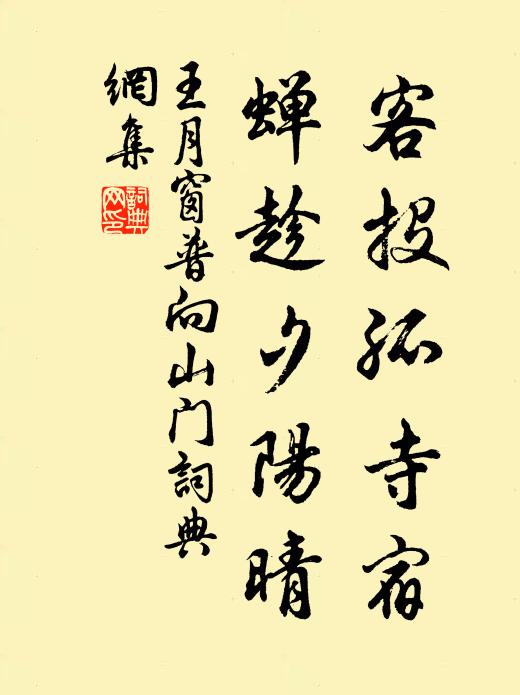 客投孤寺宿
蝉趁夕陽晴
王月窗普向山門詞典
網集
詞典網印